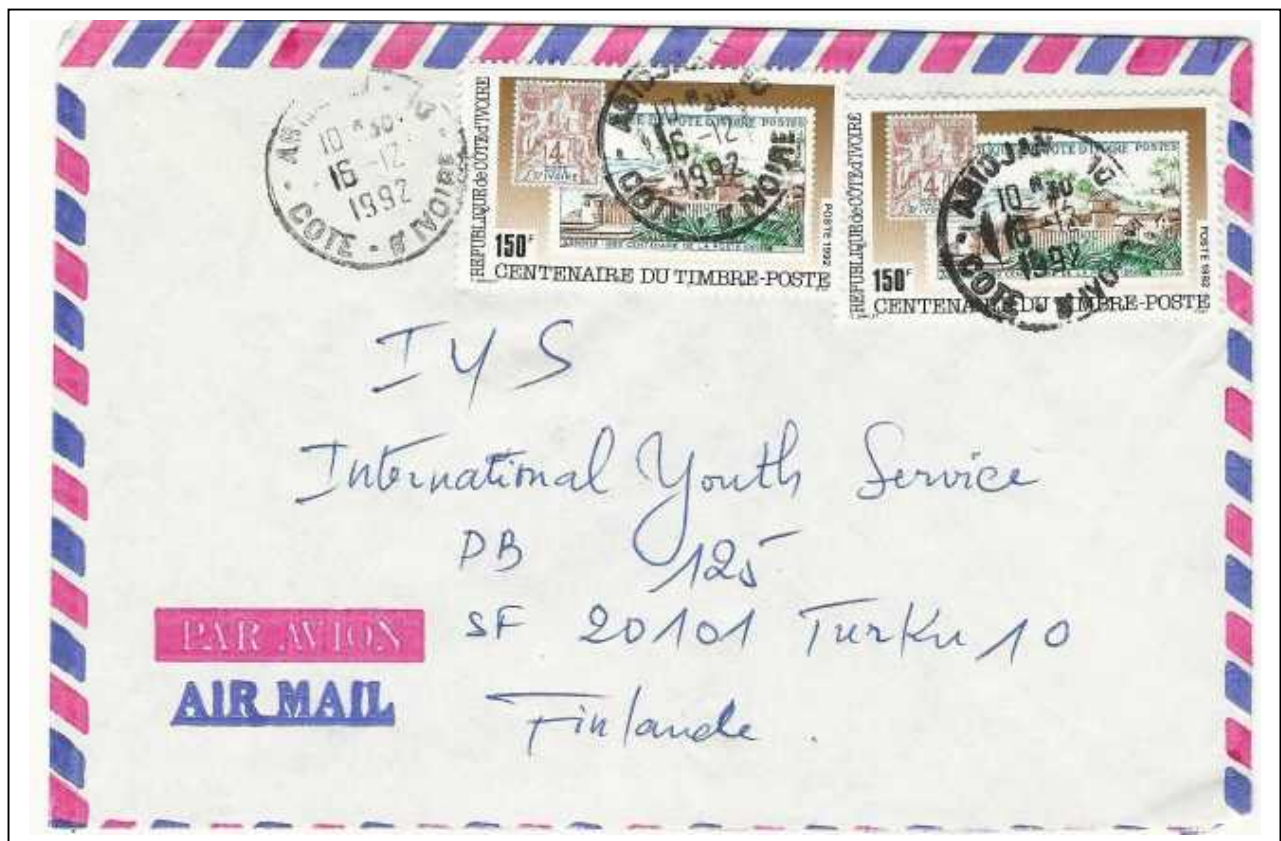 ABIDJAN
10 H 30
16 -12
1992
COTE D'IVOIRE
REPUBLIQUE de CÔTE d'IVOIRE
4
COTE D'IVOIRE
150F
POSTE 1992
CENTENAIRE DU TIMBRE-POSTE
ABIDJAN
10 H 30
16 -12
1992
COTE D'IVOIRE
REPUBLIQUE de CÔTE d'IVOIRE
4
150F
POSTE 1992
CENTENAIRE DU TIMBRE-POSTE
ABIDJAN
10 H 30
16 -12
1992
COTE D'IVOIRE
IYS
International Youth Service
PB 125
SF 20101 Turku 10
Finlande.
PAR AVION
AIR MAIL